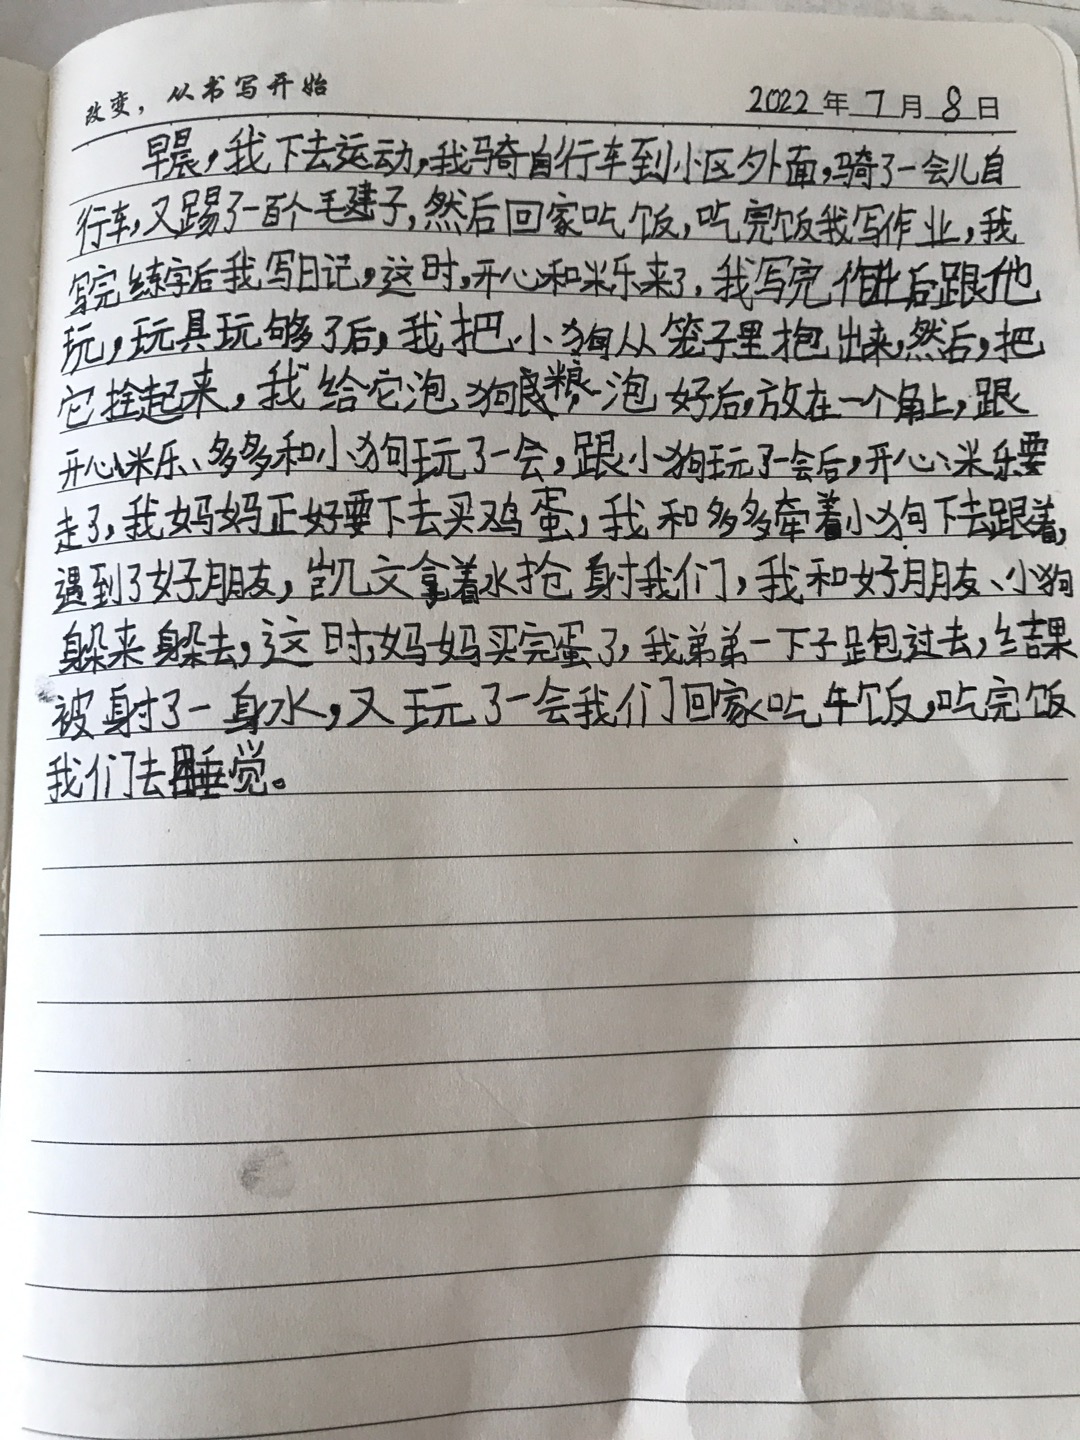 改变，从书写开始
2022年7月8日
早晨，我下去运动，我骑自行车到小区外面，骑了一会儿自
行车，又踢了一百个毛建子，然后回家吃饭，吃完饭我写作业，我
写完练字后我写日记，这时，开心和米乐来了，我写完作业后跟他
玩，玩具玩够了后，我把小狗从笼子里抱出来，然后，把
它拴起来，我给它泡狗粮，泡好后，放在一个角上，跟
开心、米乐、多多和小狗玩了一会，跟小狗玩了一会后，开心、米乐要
走了，我妈妈正好要下去买鸡蛋，我和多多牵着小狗下去跟着，
遇到了好朋友，凯文拿着水抢射我们，我和好朋友、小狗
躲来躲去，这时，妈妈买完蛋了，我弟弟一下子跑过去，结果
被射了一身水，又玩了一会我们回家吃午饭，吃完饭
我们去睡觉。